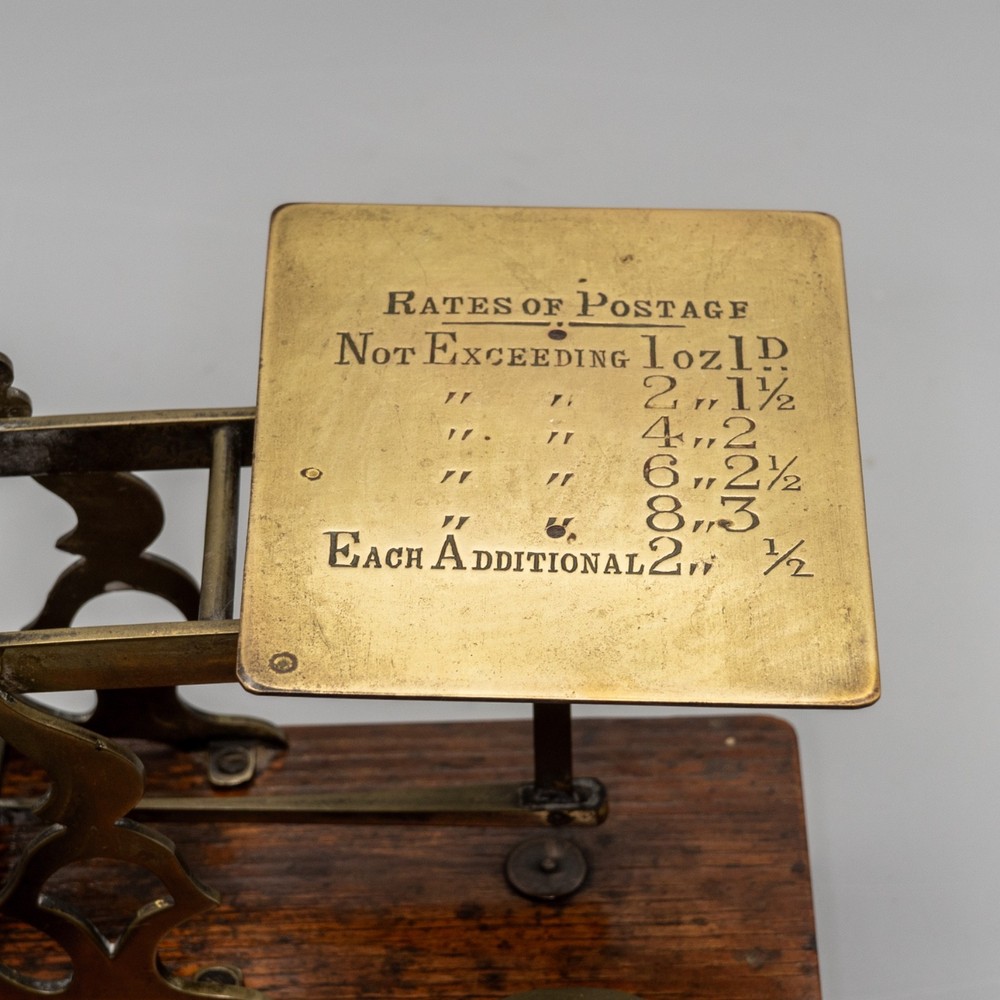 RATES OF POSTAGE
NOT EXCEEDING 1 OZ 1D
" " 2 " 1½
" " 4 " 2
" " 6 " 2½
" " 8 " 3
EACH ADDITIONAL 2 " ½